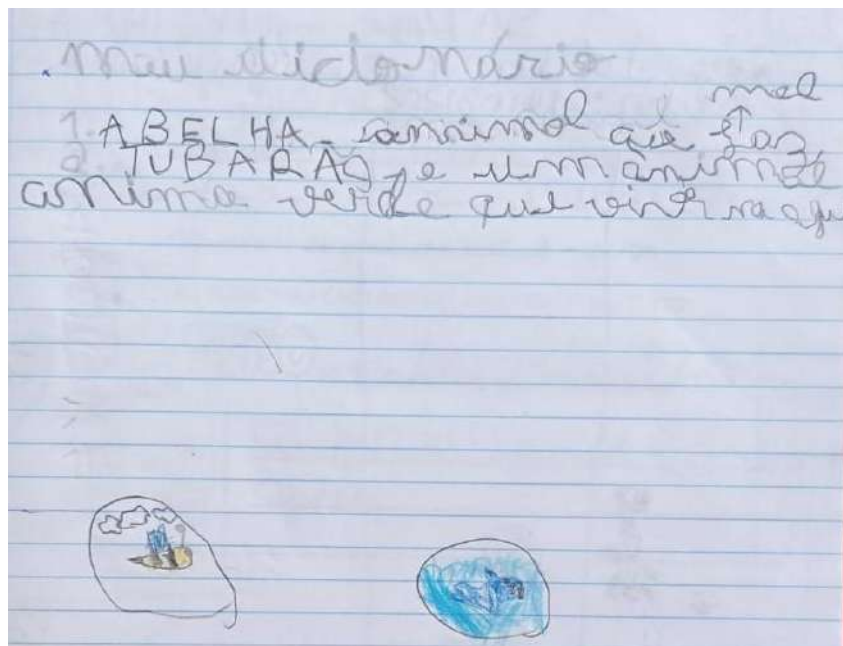 . Meu dicionário
mel
1. ABELHA - annimol que faz
2. TUBARÃO - e um animal
anima verde que vive na agu